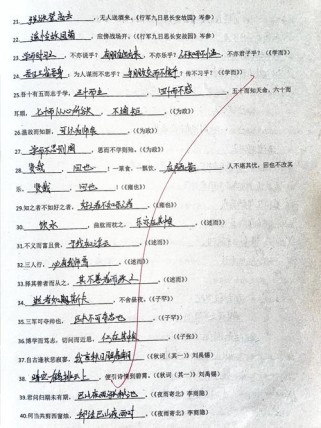 21. 强欲登高去,无人送酒来。(《行军九日思长安故园》岑参)
22. 遥怜故园菊,应傍战场开。(《行军九日思长安故园》岑参)
23. 学而时习之,不亦说乎?有朋自远方来,不亦乐乎?人不知而不愠,不亦君子乎?(《学而》)
24. 吾日三省吾身:为人谋而不忠乎?与朋友交而不信乎?传不习乎?(《学而》)
25.吾十有五而志于学,三十而立,四十而不惑,五十而知天命,六十而
耳顺,七十而从心所欲,不逾矩。(《为政》)
26.温故而知新,可以为师矣。(《为政》)
27. 学而不思则罔,思而不学则殆。(《为政》)
28. 贤哉,回也!一箪食,一瓢饮,在陋巷,人不堪其忧,回也不改其
乐。贤哉,回也!(《雍也》)
29.知之者不如好之者,好之者不如乐之者。(《雍也》)
30. 饮水,曲肱而枕之,乐亦在其中。(《述而》)
31.不义而富且贵,于我如浮云。(《述而》)
32.三人行,必有我师焉。(《述而》)
33.择其善者而从之,其不善者而改之。(《述而》)
34. 逝者如斯夫,不舍昼夜。(《子罕》)
35.三军可夺帅也,匹夫不可夺志也。(《子罕》)
36.博学而笃志,切问而近思,仁在其中。(《子张》)
37.自古逢秋悲寂寥,我言秋日胜春朝。(《秋词(其一)》刘禹锡)
38. 晴空一鹤排云上,便引诗情到碧霄。(《秋词(其一)》刘禹锡)
39.君问归期未有期,巴山夜雨涨秋池。(《夜雨寄北》李商隐)
40.何当共剪西窗烛,却话巴山夜雨时。(《夜雨寄北》李商隐)